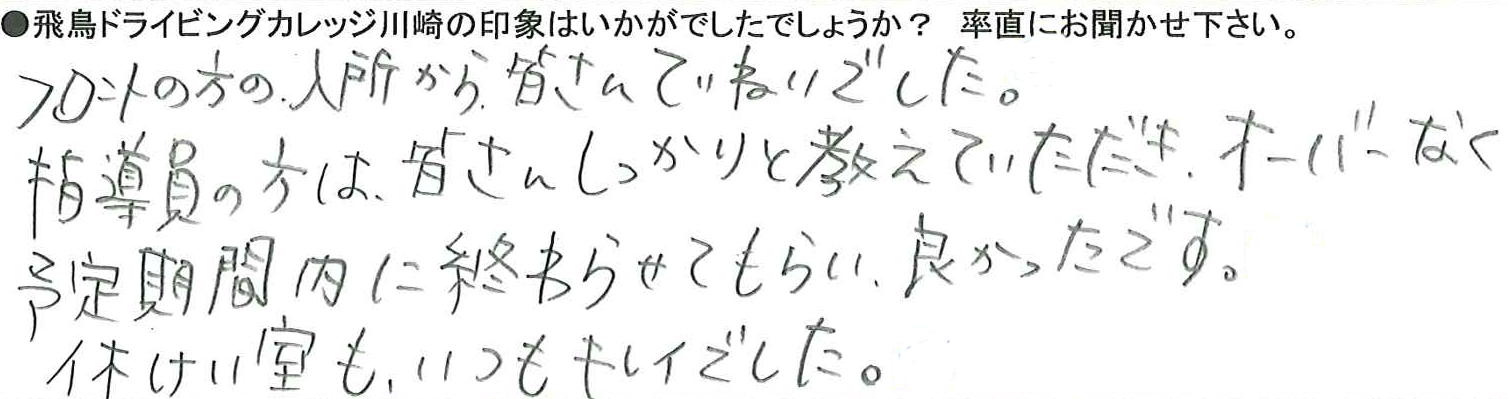 ●飛鳥ドライビングカレッジ川崎の印象はいかがでしたでしょうか？ 率直にお聞かせ下さい。
フロントの方の、入所から、皆さんていねいでした。
指導員の方は、皆さんしっかりと教えていただき、オーバーなく
予定期間内に終わらせてもらい、良かったです。
休けい室も、いつもキレイでした。